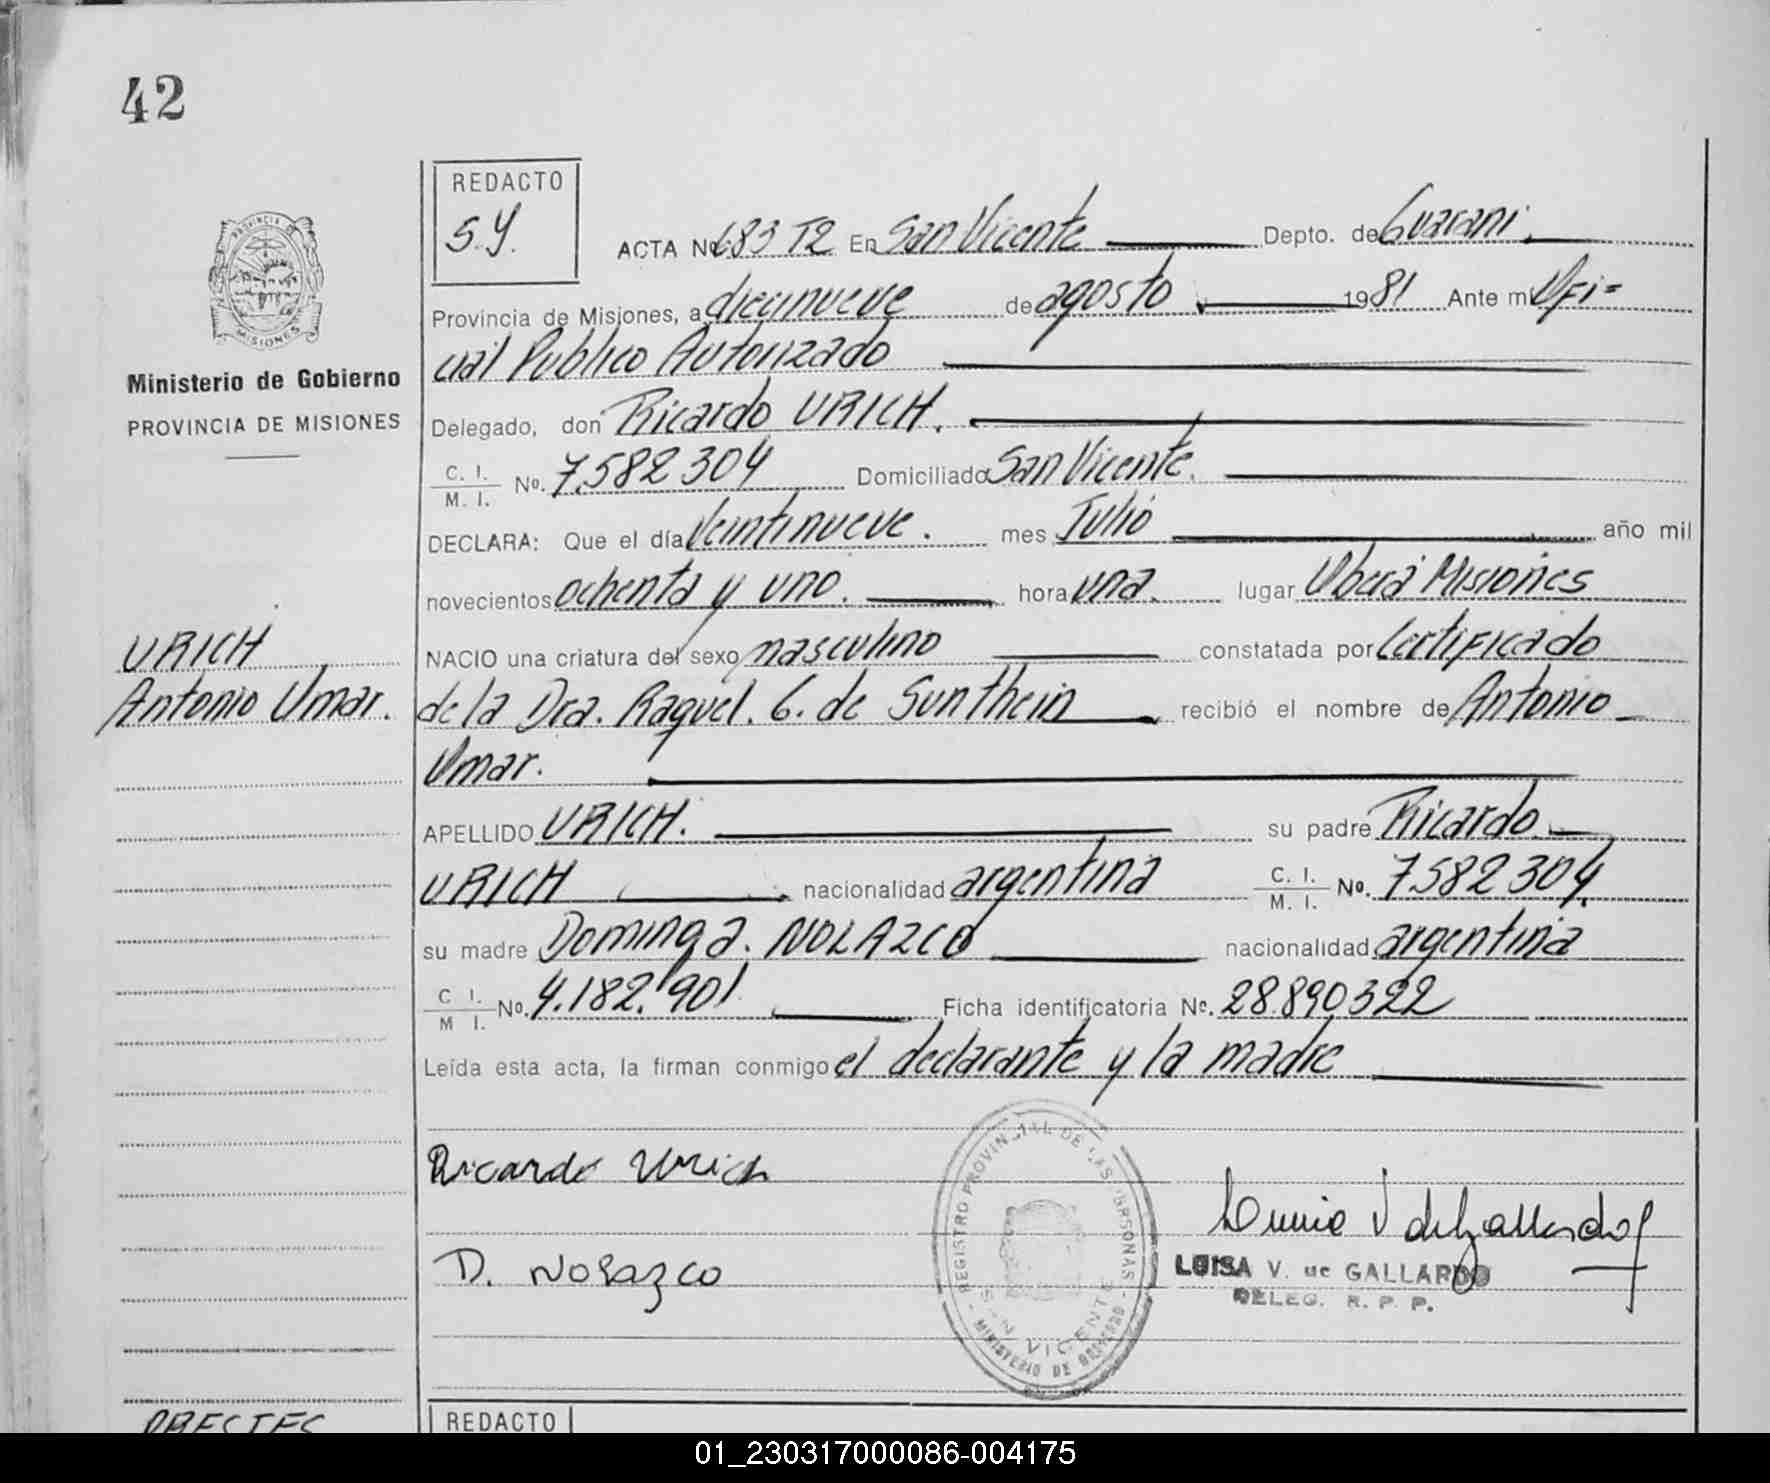 42
REDACTO
S.Y.
ACTA Nº 683 T2 En San Vicente Depto. de Guarani.
Provincia de Misiones, a diecinueve de agosto 1981 Ante mi Ofi=
cial Publico Autorizado
Ministerio de Gobierno
PROVINCIA DE MISIONES
Delegado, don Ricardo URICH.
C. I.
M. I. Nº. 7.582304 Domiciliado San Vicente.
DECLARA: Que el día Veintinueve. mes Julio año mil
novecientos ochenta y uno. hora una. lugar Oberá Misiones
URICH
Antonio Omar.
NACIO una criatura del sexo masculino constatada por Certificado
de la Dra. Raquel. G. de Sunthein recibió el nombre de Antonio
Omar.
APELLIDO URICH. su padre Ricardo
URICH nacionalidad argentina C. I.
M. I. Nº. 7582304.
su madre Dominga. NOLAZCO nacionalidad argentina
C I.
M I. Nº. 4.182.901 Ficha identificatoria Nº. 28.890322
Leída esta acta, la firman conmigo el declarante y la madre
Ricardo Urich
D. Nolazco
REGISTRO PROVINCIAL DE LAS PERSONAS
SAN VICENTE
MINISTERIO DE GOBIERNO
LUISA V. de GALLARDO
DELEG. R. P. P.
REDACTO
01_230317000086-004175